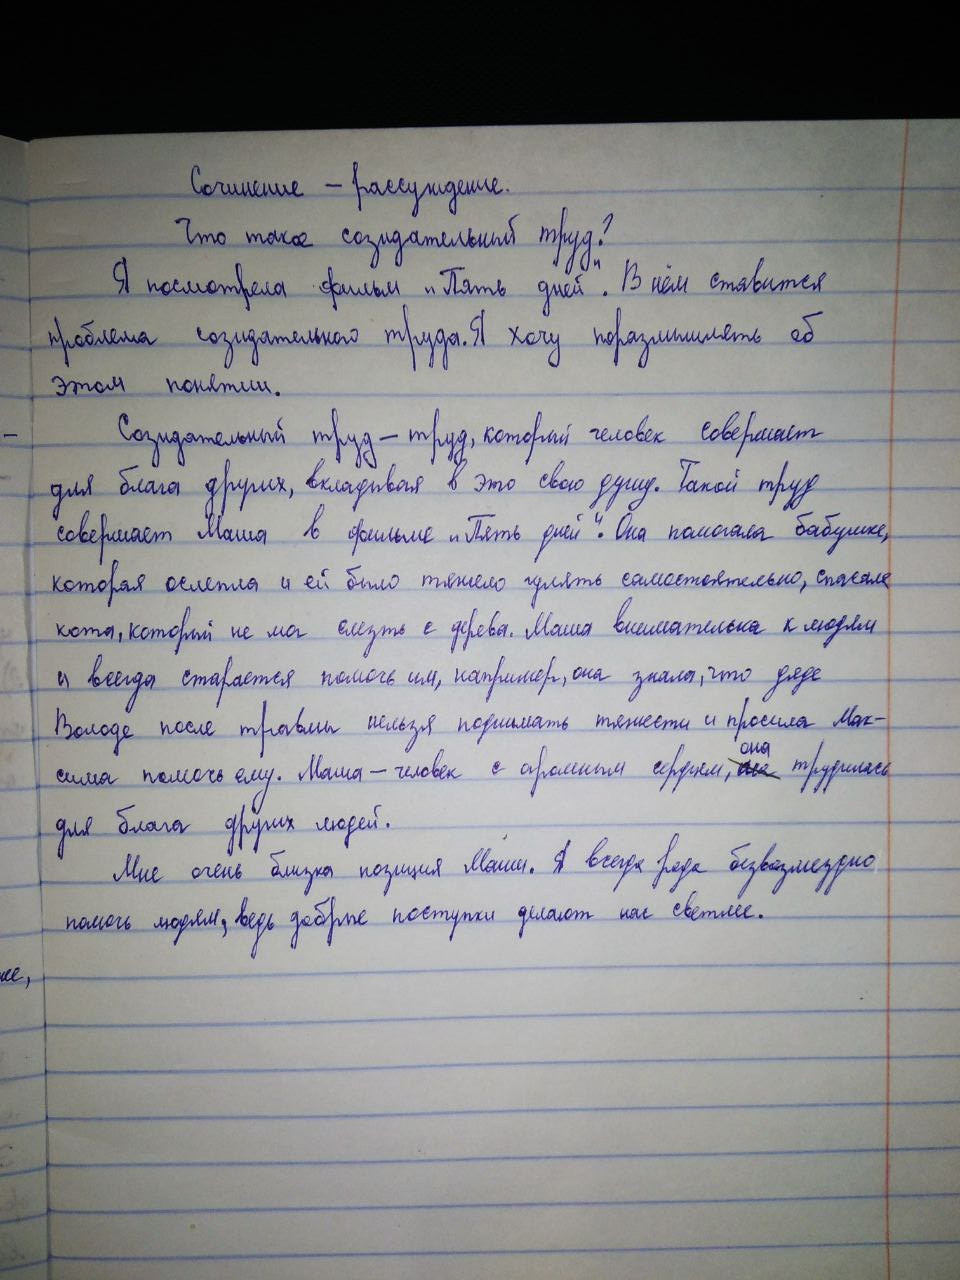 Сочинение – рассуждение.
Что такое созидательный труд?
Я посмотрела фильм „Пять дней". В нём ставится
проблема созидательного труда. Я хочу поразмышлять об
этом понятии.
Созидательный труд – труд, который человек совершает
для блага других, вкладывая в это свою душу. Такой труд
совершает Маша в фильме „Пять дней". Она помогала бабушке,
которая ослепла и ей было тяжело гулять самостоятельно, спасала
кота, который не мог слезть с дерева. Маша внимательна к людям
и всегда старается помочь им, например, она знала, что дяде
Володе после травмы нельзя поднимать тяжести и просила Мак-
сима помочь ему. Маша – человек с огромным сердцем, она трудилась
для блага других людей.
Мне очень близка позиция Маши. Я всегда рада безвозмездно
помочь людям, ведь добрые поступки делают нас светлее.